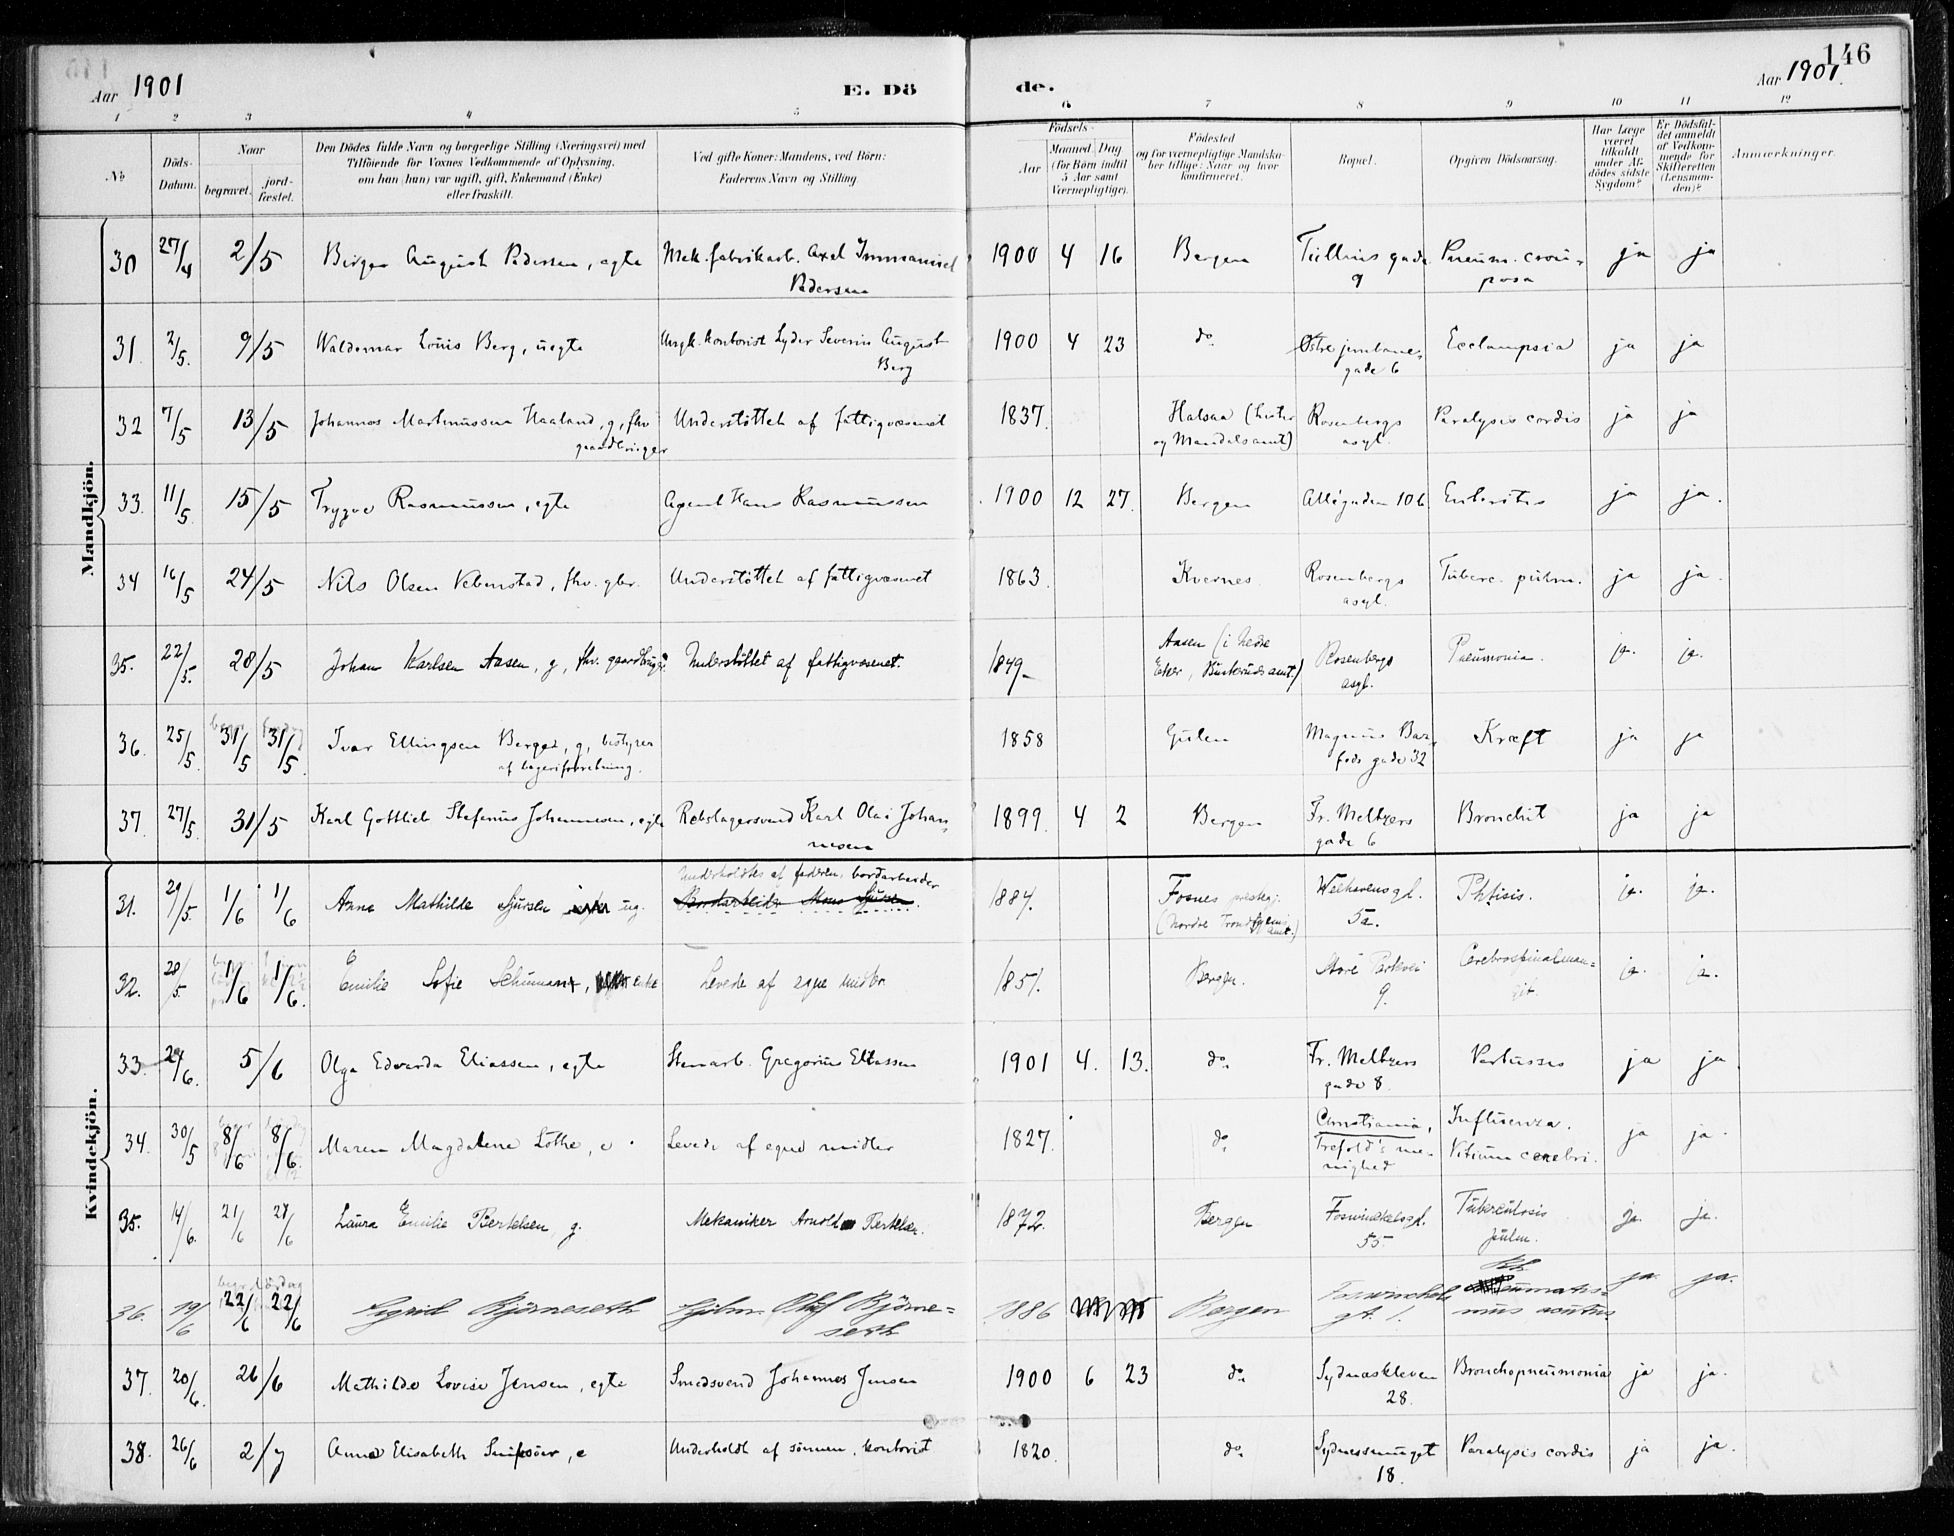 146
Aar 1901
E. Döde.
Aar 1901.
1 2 3 4 5 6 7 8 9 10 11 12
No
Döds-Datum.
Naar
begravet.
jord-fæstet.
Den Dödes fulde Navn og borgerlige Stilling (Næringsvei) med
Tilföiende for Voxnes Vedkommende af Oplysning,
om han (hun) var ugift, gift, Enkemand (Enke)
eller fraskilt.
Ved gifte Koner: Mandens, ved Börn:
Faderens Navn og Stilling.
Födsels-
Aar
Maaned. Dag
(for Börn indtil
5 Aar samt
Værnepligtige).
Födested
og for værnepligtige Mandska-
ber tillige: Naar og hvor
konfirmeret.
Bopæl.
Opgiven Dödsaarsag.
Har Læge
været
tilkaldt
under Af-
dödes sidste
Sygdom?
Er Dödsfal-
det anmeldt
af Vedkom-
mende for
Skifteretten
(Lensman-
den)?
Anmærkninger.
Mandkjön.
30 27/4 2/5 Birger August Pedersen, ægte Mek. fabrikarb. Axel Immanuel Pedersen 1900 4 16 Bergen Tullins gade 9 Pneum. crouposa ja ja
31. 2/5. 9/5 Waldemar Louis Berg, uægte Ungk. kontorist Lyder Severin August Berg 1900 4 23 do Østre jernbanegade 6 Ecclampsia ja ja
32 7/5 13/5 Johannes Martinussen Haaland, g, fhv gaardbruger Understöttet af fattigvæsenet 1837. Halsaa (Lister og Mandals amt) Rosenbergs asyl. Paralysis cordis ja ja
33. 11/5 15/5 Trygve Rasmussen, ægte Agent Hans Rasmussen 1900 12 27. Bergen Allégaden 10 b. Enteritis ja ja.
34 16/5 24/5 Nils Olsen Vebenstad, fhv. gbr. Understöttet af fattigvæsenet 1863. Kvernes Rosenbergs asyl. Tuberc. pulm. ja ja.
35. 22/5. 28/5 Johan Karlsen Aasen, g, fhv. gaardbruger Understöttet af fattigvæsenet. 1849 Aasen (i Nedre Eker, Buskeruds amt.) Rosenbergs asyl. Pneumonia. ja. ja.
36. 25/5. 31/5 31/5 Ivar Ellingsen Berge, g, bestyrer af bageriforretning. 1858 Gulen Magnus Barfods gade 32 Kræft ja ja
37. 27/5. 31/5 Karl Gottlieb Stefanus Johannesen, ægte Rebslagersvend Karl Olai Johannesen 1899. 4 2 Bergen Fr. Meltzers gade 6 Bronchit ja ja
Kvindekjön.
31. 29/5. 1/6 1/6 Anna Mathilde Sjursen ug. Underholdtes af faderen, bordarbeider Bordarbeider Mons Sjursen. 1884. Fosnes prestegj. (Nordre Trondhjems amt.) Welhavensgt. 5a. Phtisis. ja. ja.
32. 28/5 1/6 1/6. Emilie Sofie Schumann, enke Levede af egne midler 1851. Bergen. Store Parkvei 9. Cerebrospinalmeningit. ja. ja.
33. 6. 5/6 Olga Edvarda Eliassen, ægte Stenarb. Gregorius Eliassen 1901 4. 13. do. Fr. Meltzers gade 8. Pertussis ja ja.
34. 30/5 8/6 8/6. Maren Magdalene Lothe, e. Levede af egne midler 1827. do. Christiania, Trefold's menighed Influenza. Vitium cerebri. ja ja.
35. 14/6. 21/6 21/6 Laura Emilie Bertelsen, g. Mekaniker Arnold Bertelsen. 1872. Bergen Foswinckelsgt. 55 Tuberculosis pulm. ja. ja.
36. 19/6 22/6 22/6 Sigrid Björneseth Olaf Björneseth 1886 Bergen Foswinckels gt. 1. Rheumatismus acutus ja. ja.
37. 20/6. 26/6 Mathilde Lovise Jensen, ægte Smedsvend Johannes Jensen 1900 6 23 do. Sydneskleven 28. Bronchopneumonia ja ja.
38. 26/6 2/7 Anna Elisabeth, e Underholdt af sönnen, kontorist 1820. do. Sydnessmuget 18. Paralysis cordis ja ja.